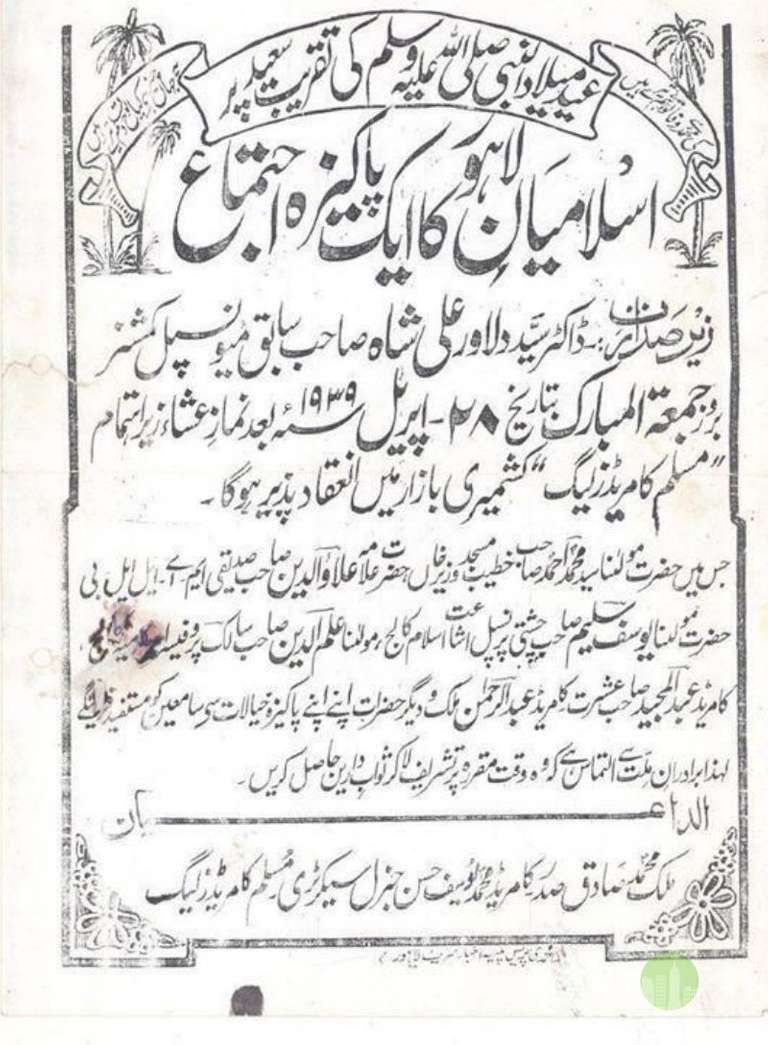 عید میلاد النبی صلی اللہ علیہ وسلم کی تقریب سعید پر
اسلامیانِ لاہور کا ایک پاکیزہ اجتماع
زیر صدارت:- ڈاکٹر سید دلاور علی شاہ صاحب سابق میونسپل کمشنر
بروز جمعۃ المبارک بتاریخ ۲۸- اپریل ۱۹۳۹ء بعد نماز عشاء زیر اہتمام
"مسلم کامریڈز لیگ" کشمیری بازار میں انعقاد پذیر ہوگا۔
جس میں حضرت مولٰنا سید محمد احمد صاحب خطیب مسجد وزیر خاں حضرت علامہ علاؤالدین صاحب صدیقی ایم۔اے۔ایل ایل بی
حضرت مولٰنا یوسف سلیم صاحب چشتی پرنسپل اشاعت اسلام کالج، مولٰنا علم الدین صاحب سالک پروفیسر اسلامیہ کالج،
کامریڈ عبدالمجید صاحب عشرت کامریڈ عبدالرحمٰن ملک و دیگر حضرات اپنے اپنے پاکیزہ خیالات سی سامعین کو مستفید فرمائیں گے
لہذا برادرانِ ملت سے التماس ہے کہ وہ وقت مقررہ پر تشریف لا کر ثواب دارین حاصل کریں۔
الداعیان
ملک محمد صادق صدر کامریڈ محمد یوسف حسن جنرل سیکرٹری مسلم کامریڈز لیگ